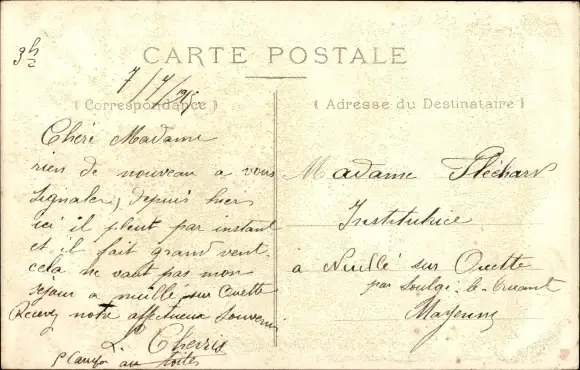 CARTE POSTALE
7/7/1915
( Correspondance )
Chère Madame
rien de nouveau a vous
signaler, depuis hier
ici il pleut par instant
et il fait grand vent.
cela ne vaut pas mon
séjour a nuillé sur Ouette
Recevez notre affectueux Souvenir
( Adresse du Destinataire )
Madame Pléchard
Institutrice
à Nuillé sur Ouette
par Soulgé-le-Bruant
Mayenne